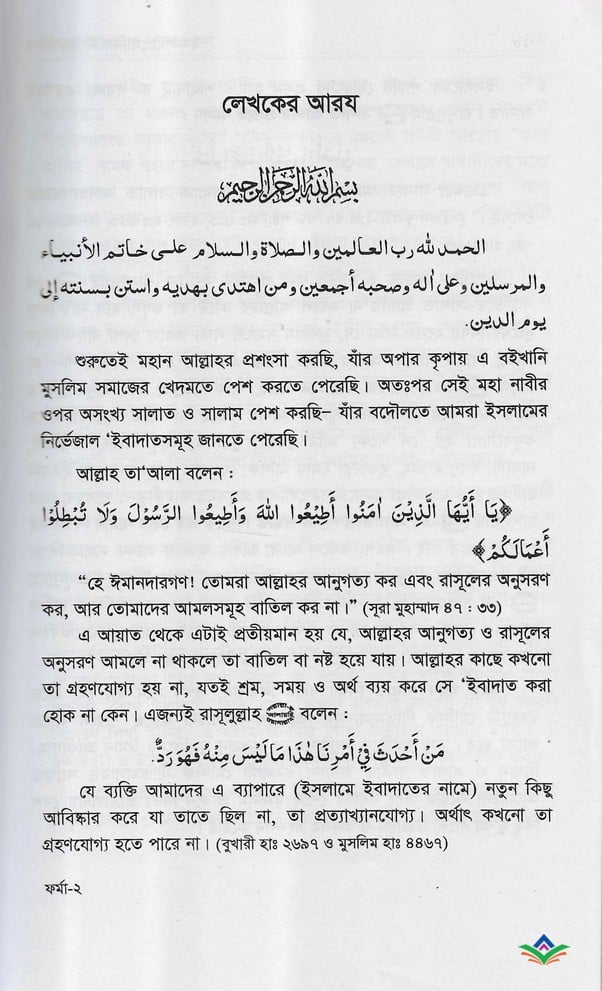 লেখকের আরয
بسم الله الرحمن الرحيم
الحمد لله رب العالمين والصلاة والسلام على خاتم الأنبياء
والمرسلين وعلى اله وصحبه أجمعين ومن اهتدى بهديه واستن بسنته إلى
يوم الدين.
শুরুতেই মহান আল্লাহর প্রশংসা করছি, যাঁর অপার কৃপায় এ বইখানি
মুসলিম সমাজের খেদমতে পেশ করতে পেরেছি। অতঃপর সেই মহা নাবীর
ওপর অসংখ্য সালাত ও সালাম পেশ করছি– যাঁর বদৌলতে আমরা ইসলামের
নির্ভেজাল ‘ইবাদাতসমূহ জানতে পেরেছি।
আল্লাহ তা‘আলা বলেন :
﴿يَا أَيُّهَا الَّذِينَ اٰمَنُوا أَطِيعُوا اللهَ وَأَطِيعُوا الرَّسُوْلَ وَلَا تُبْطِلُوْا
أَعْمَالَكُمْ﴾
“হে ঈমানদারগণ! তোমরা আল্লাহর আনুগত্য কর এবং রাসূলের অনুসরণ
কর, আর তোমাদের আমলসমূহ বাতিল কর না।” (সূরা মুহাম্মাদ ৪৭ : ৩৩)
এ আয়াত থেকে এটাই প্রতীয়মান হয় যে, আল্লাহর আনুগত্য ও রাসূলের
অনুসরণ আমলে না থাকলে তা বাতিল বা নষ্ট হয়ে যায়। আল্লাহর কাছে কখনো
তা গ্রহণযোগ্য হয় না, যতই শ্রম, সময় ও অর্থ ব্যয় করে সে ‘ইবাদাত করা
হোক না কেন। এজন্যই রাসূলুল্লাহ বলেন :
مَنْ أَحْدَثَ فِيْ أَمْرِنَا هٰذَا مَا لَيْسَ مِنْهُ فَهُوَ رَدٌّ.
যে ব্যক্তি আমাদের এ ব্যাপারে (ইসলামে ইবাদাতের নামে) নতুন কিছু
আবিষ্কার করে যা তাতে ছিল না, তা প্রত্যাখ্যানযোগ্য। অর্থাৎ কখনো তা
গ্রহণযোগ্য হতে পারে না। (বুখারী হাঃ ২৬৯৭ ও মুসলিম হাঃ ৪৪৬৭)
ফর্মা-২